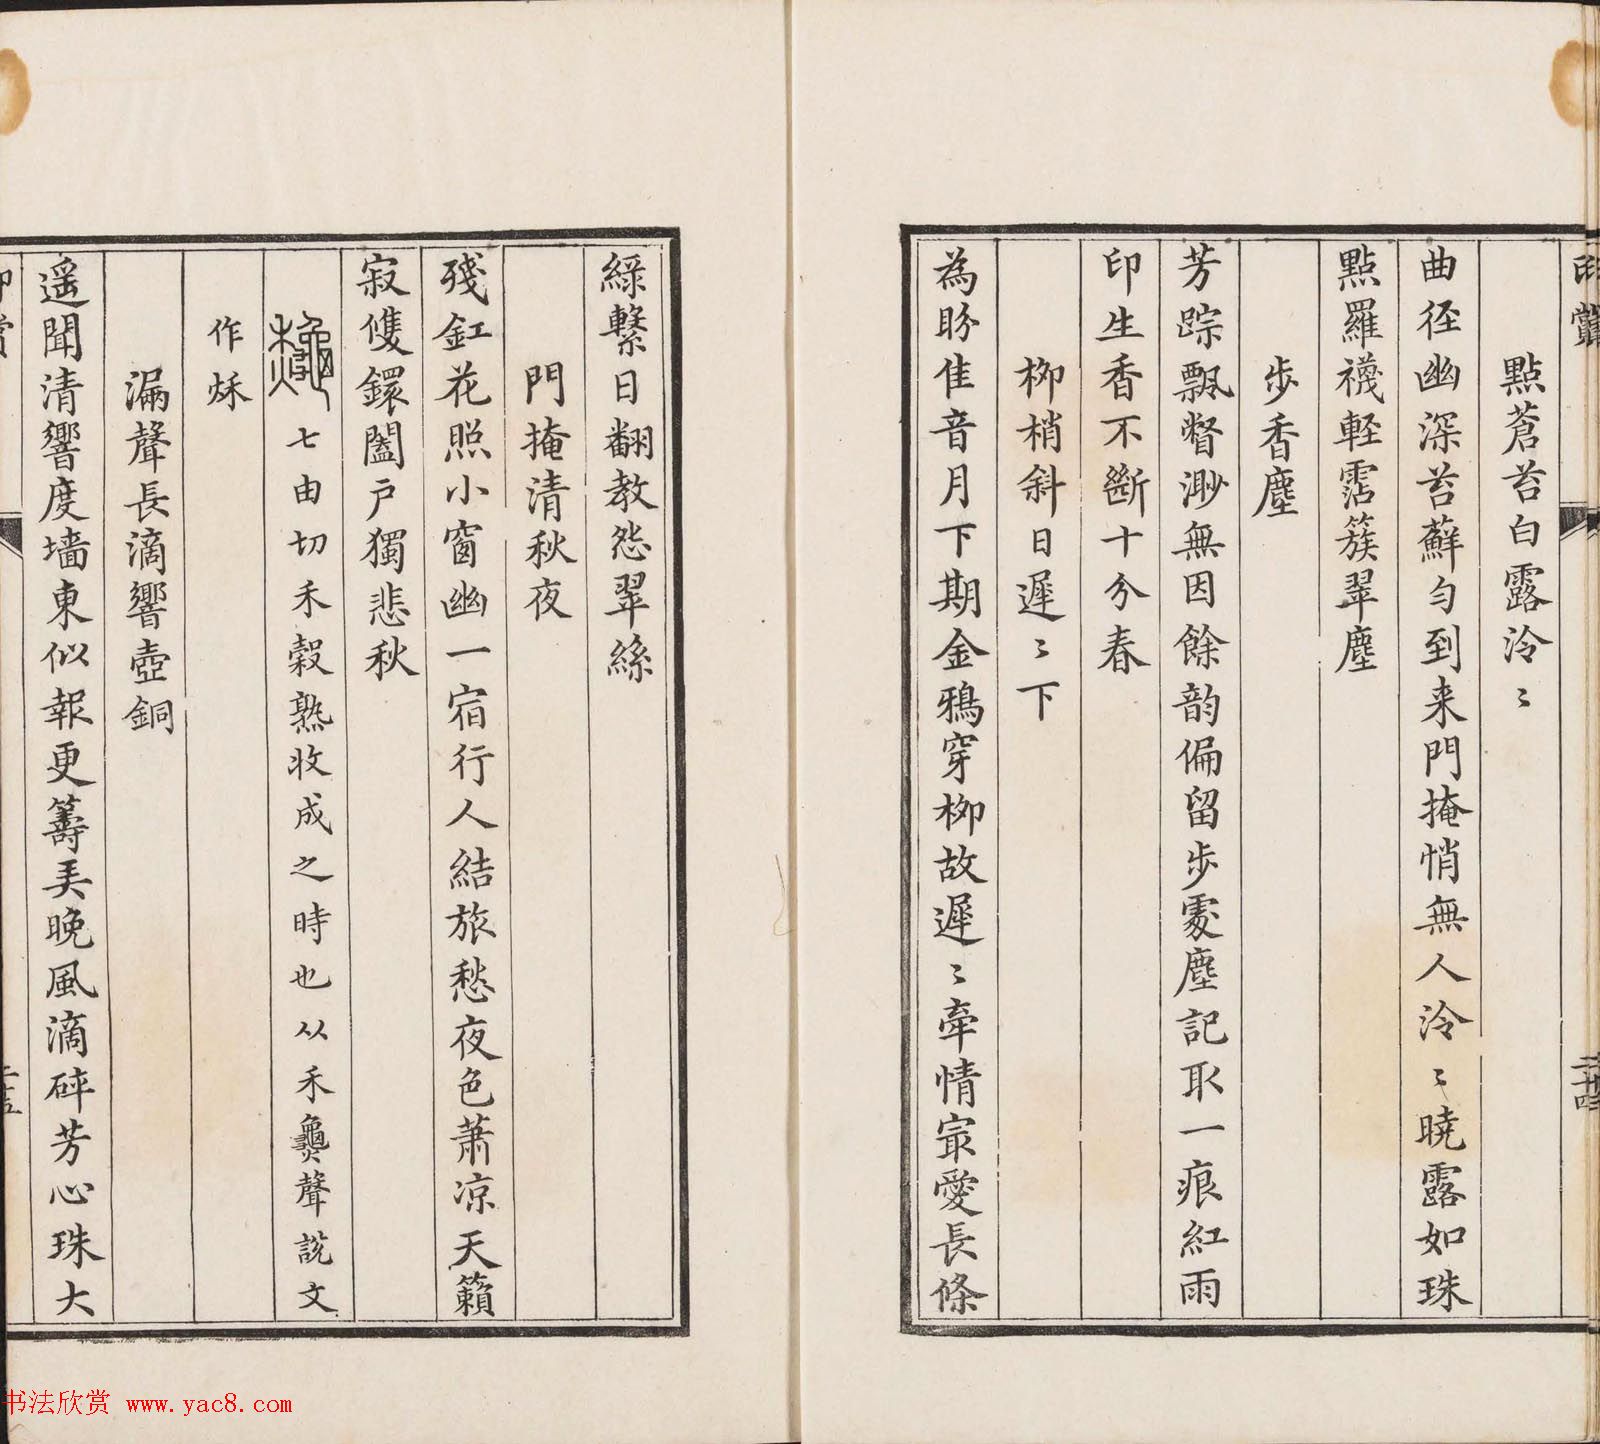 點蒼苔白露泠〻
曲径幽深苔蘚勻到来門掩悄無人泠〻曉露如珠
點羅襪輕霑簇翠塵
步香塵
芳踪飄瞥渺無因餘韵偏留步䖏塵記取一痕紅雨
印生香不斷十分春
柳梢斜日遲〻下
為盼佳音月下期金鴉穿柳故遲〻牽情㝡愛長條
綠繫日翻教怨翠絲
門掩清秋夜
殘釭花照小窗幽一宿行人結旅愁夜色蕭涼天籟
寂雙鐶闔戶獨悲秋
七由切禾穀熟收成之時也从禾聲說文
作秌
漏聲長滴響壺銅
遥聞清響度墙東似報更籌美晚風滴碎芳心珠大
二十四
二十五
书法欣赏 www.yac8.com